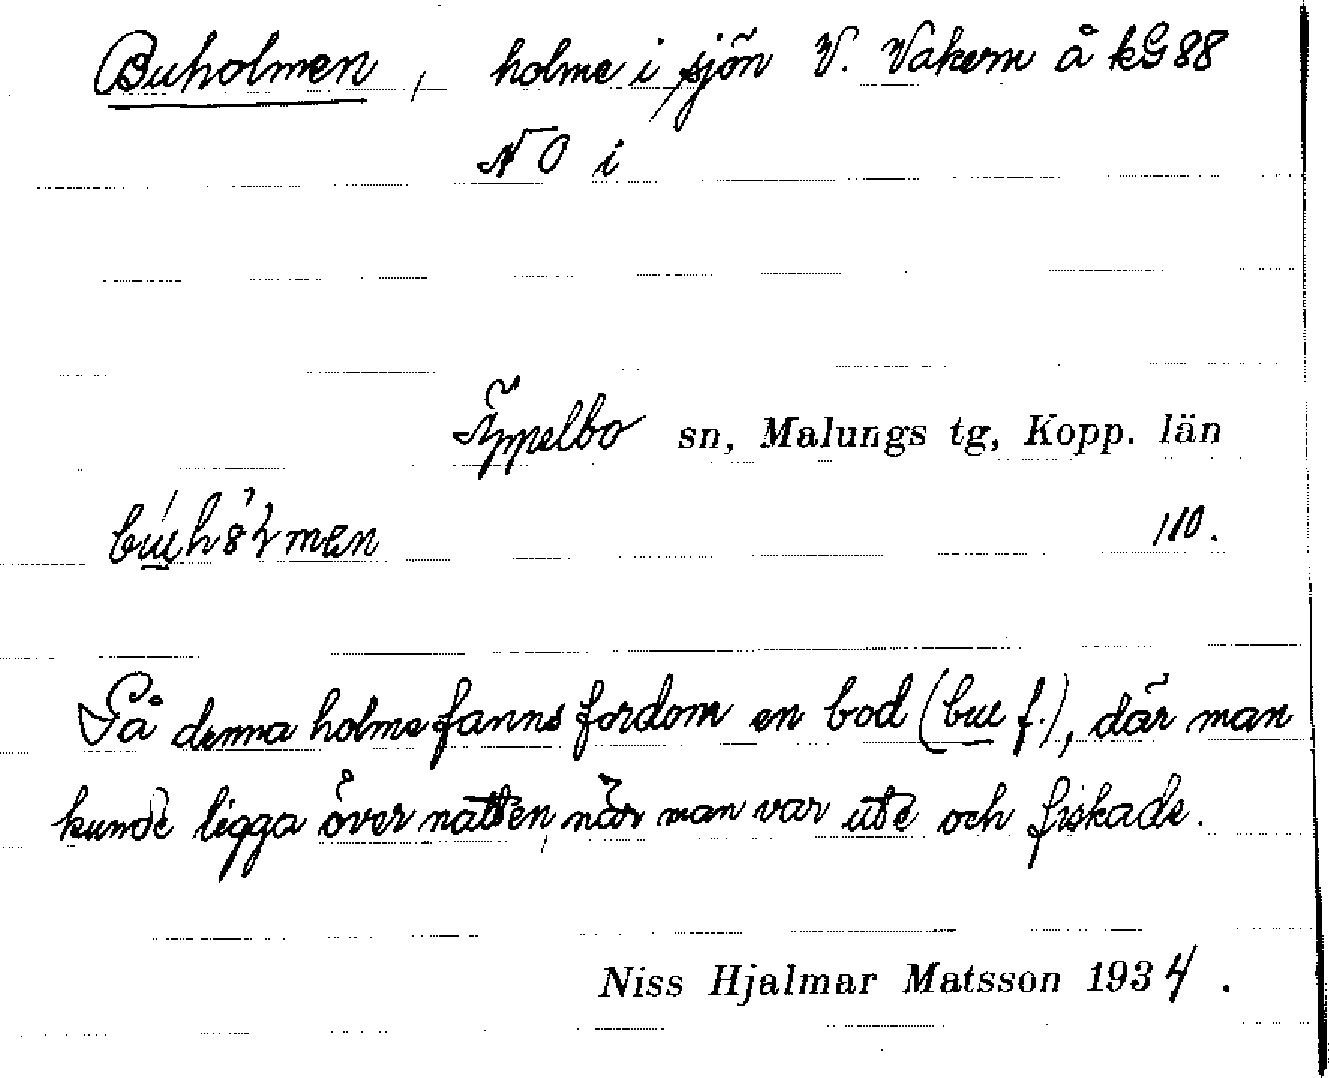 Buholmen, holme i sjön V. Vakern å kG 88
NO i
Äppelbo sn, Malungs tg, Kopp. län
110.
På denna holme fanns fordom en bod (bu f.), där man
kunde ligga över natten, när man var ute och fiskade.
Niss Hjalmar Matsson 1934.